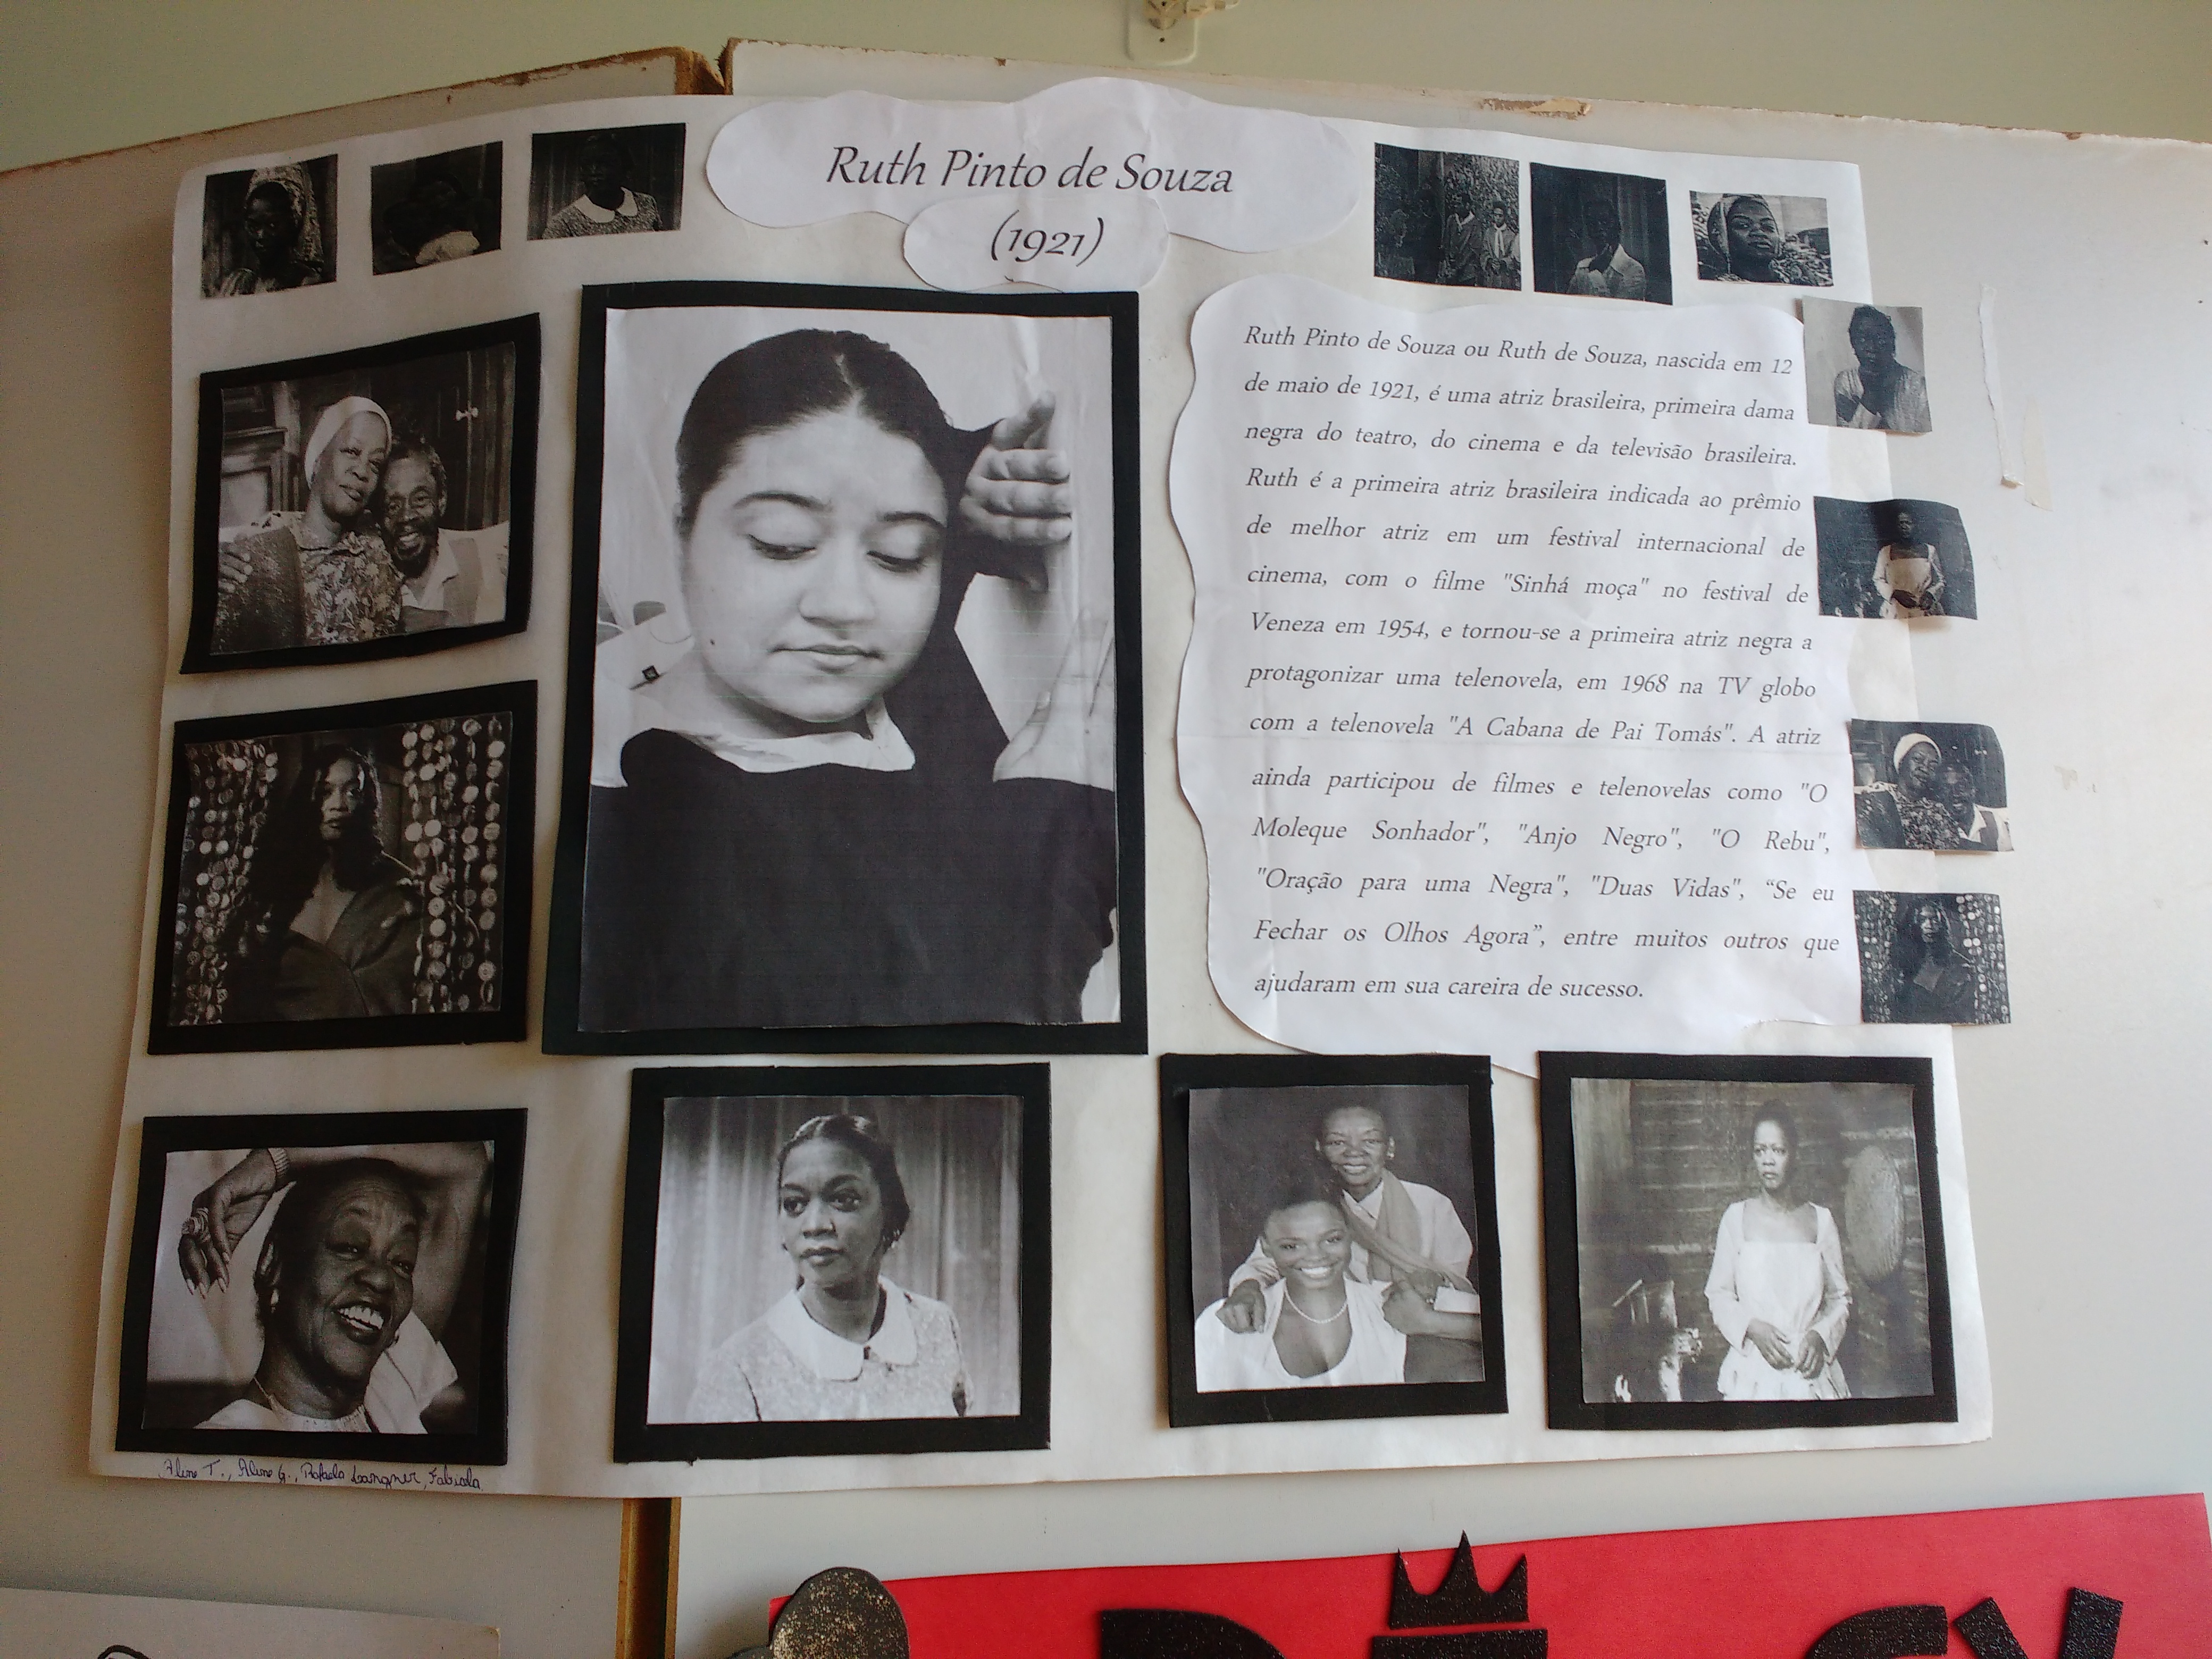 Ruth Pinto de Souza
(1921)
Ruth Pinto de Souza ou Ruth de Souza, nascida em 12
de maio de 1921, é uma atriz brasileira, primeira dama
negra do teatro, do cinema e da televisão brasileira.
Ruth é a primeira atriz brasileira indicada ao prêmio
de melhor atriz em um festival internacional de
cinema, com o filme "Sinhá moça" no festival de
Veneza em 1954, e tornou-se a primeira atriz negra a
protagonizar uma telenovela, em 1968 na TV globo
com a telenovela "A Cabana de Pai Tomás". A atriz
ainda participou de filmes e telenovelas como "O
Moleque Sonhador", "Anjo Negro", "O Rebu",
"Oração para uma Negra", "Duas Vidas", “Se eu
Fechar os Olhos Agora”, entre muitos outros que
ajudaram em sua careira de sucesso.
Aline T., Aline G., Rafaela Langner, Fabiola